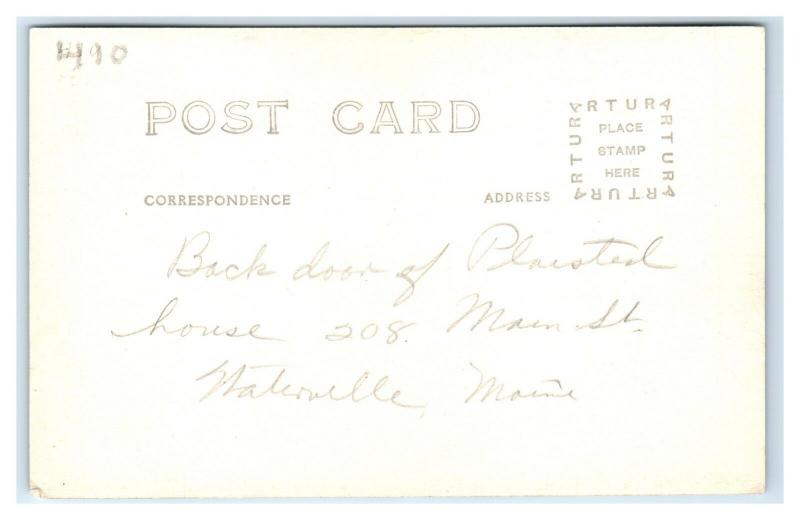 1490
POST CARD
ARTURA
ARTURA
ARTURA
ARTURA
PLACE
STAMP
HERE
CORRESPONDENCE
ADDRESS
Back door of Plaisted
house 208. Main St.
Waterville, Maine